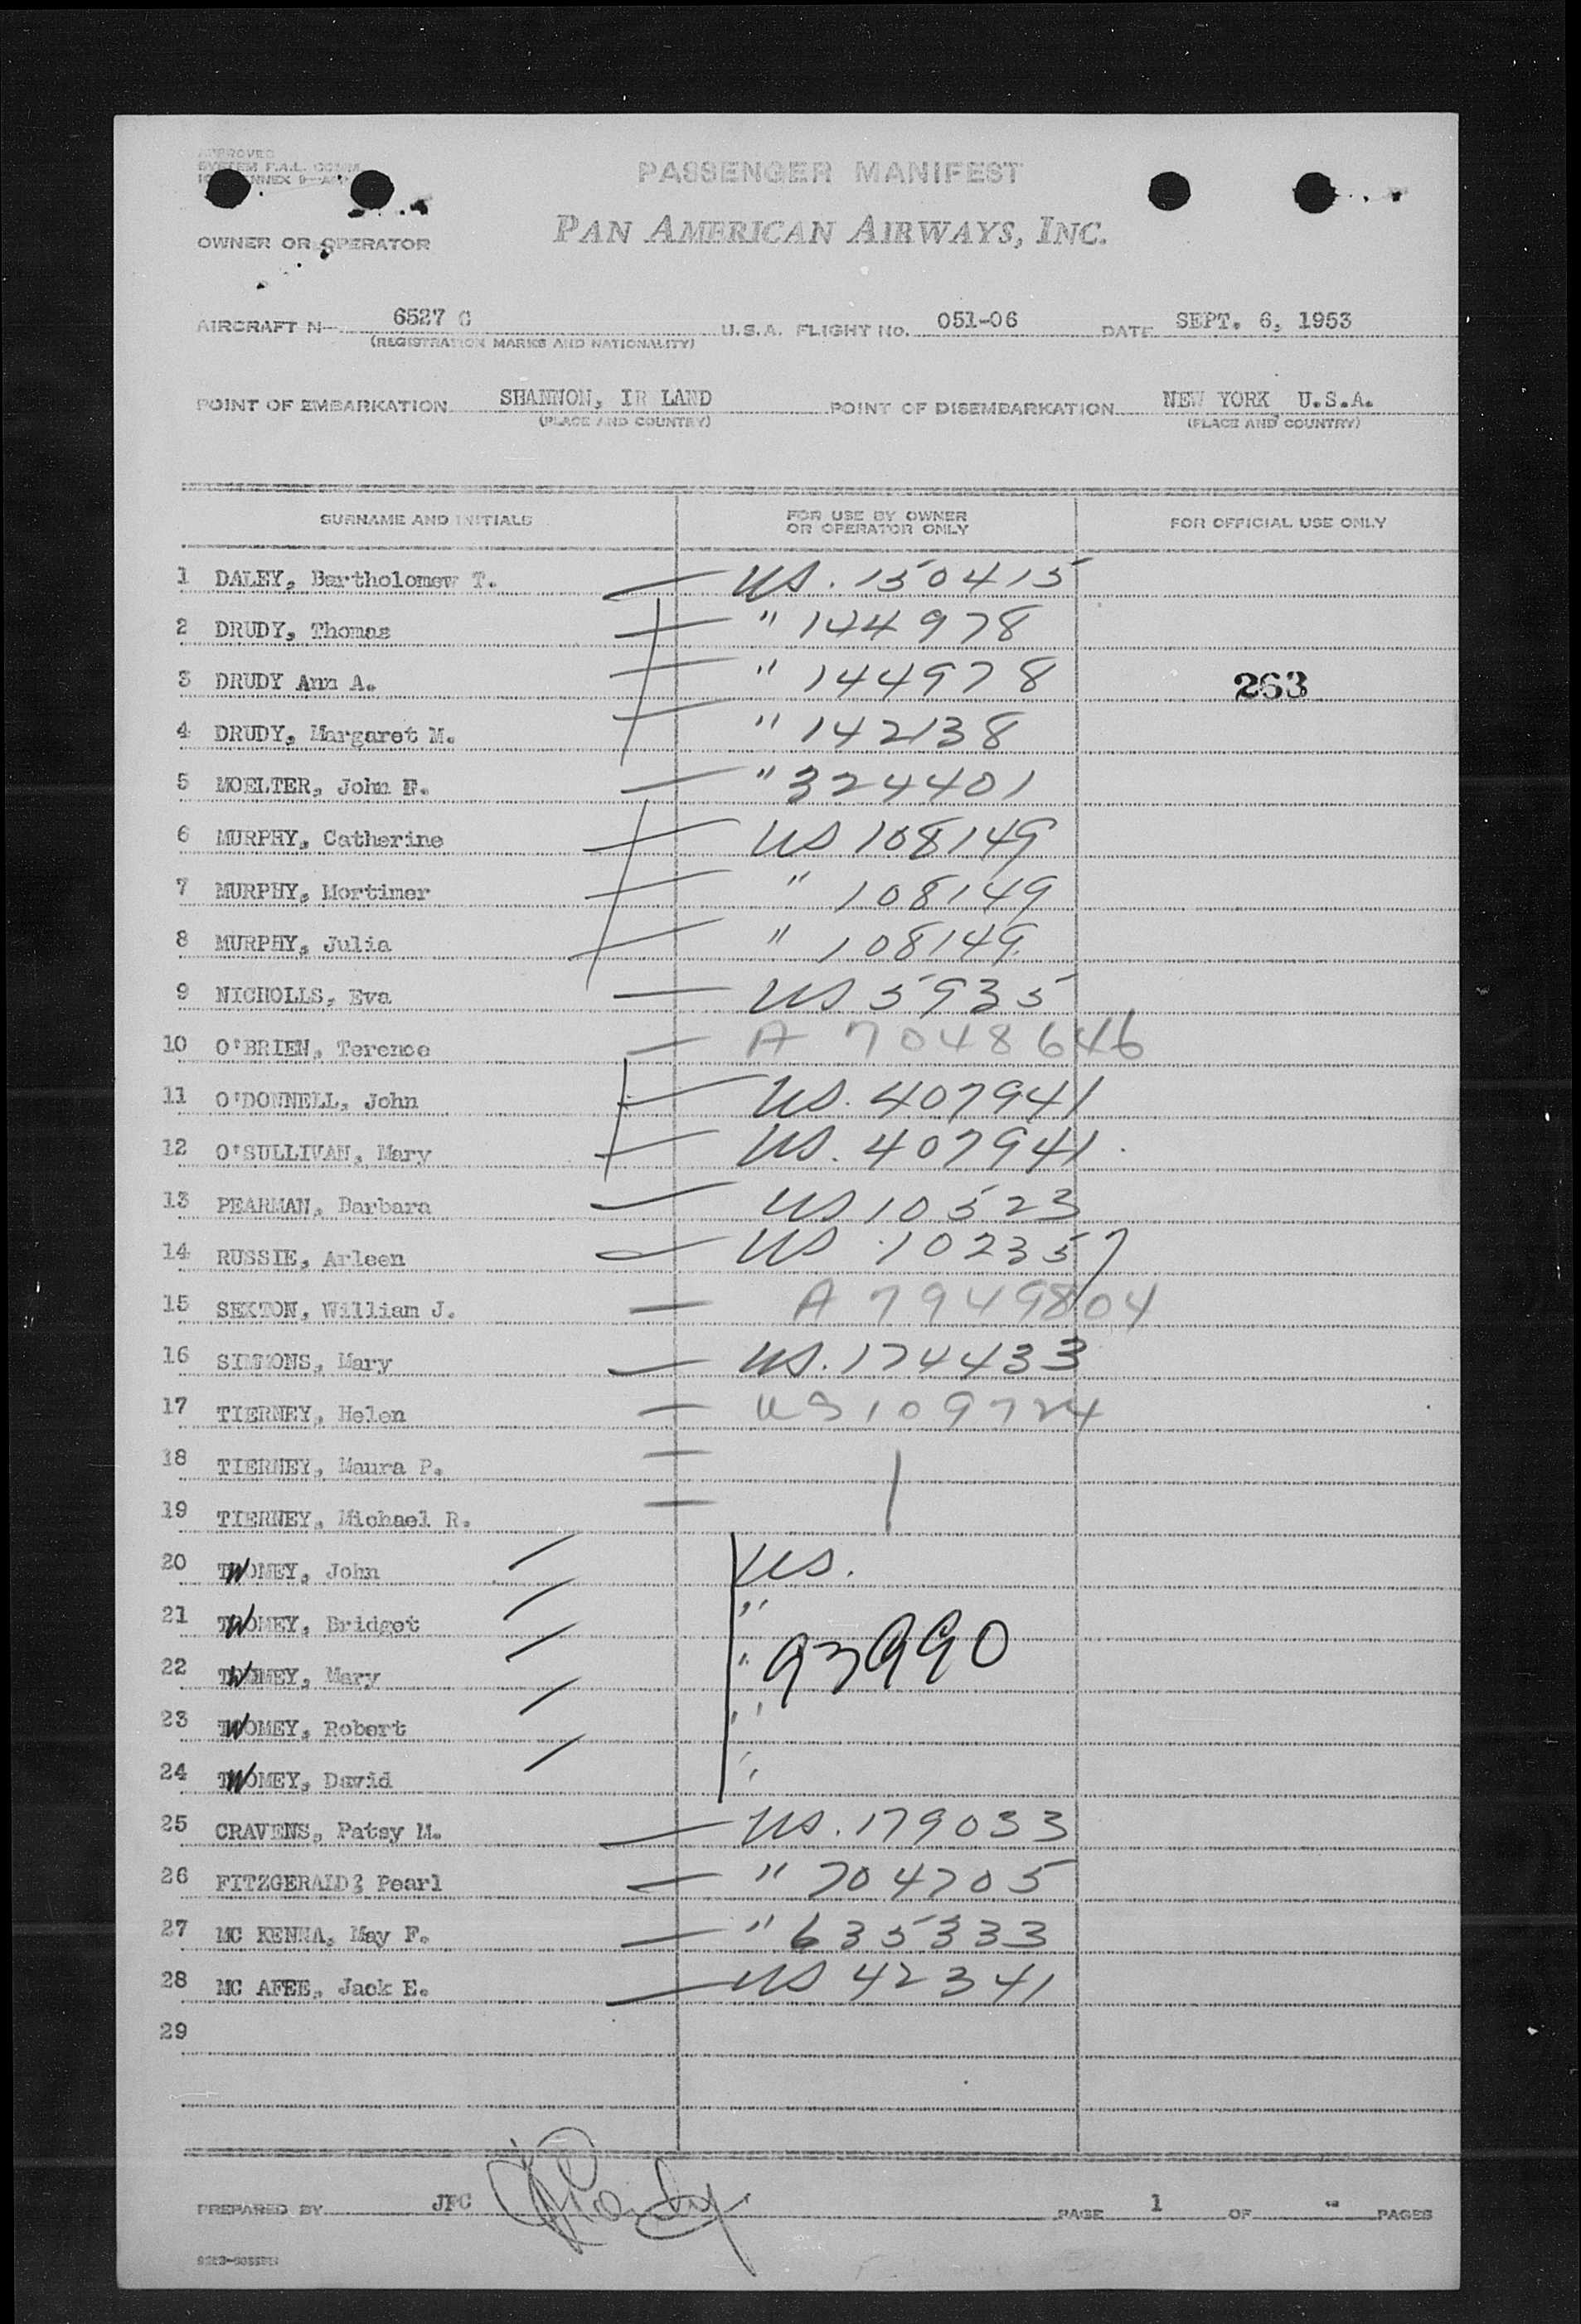 APPROVED
PASSENGER MANIFEST
PAN AMERICAN AIRWAYS, INC.
OWNER OR OPERATOR
AIRCRAFT N 6527 C U.S.A. FLIGHT No. 051-06 DATE SEPT. 6, 1953
(REGISTRATION MARKS AND NATIONALITY)
POINT OF EMBARKATION SHANNON, IR LAND POINT OF DISEMBARKATION NEW YORK U.S.A.
(PLACE AND COUNTRY) (PLACE AND COUNTRY)
SURNAME AND INITIALS FOR USE BY OWNER OR OPERATOR ONLY FOR OFFICIAL USE ONLY
1 DALEY, Bartholomew T. US. 150415
2 DRUDY, Thomas " 144978
3 DRUDY Ann A. " 144978 263
4 DRUDY, Margaret M. " 142138
5 MOELTER, John F. " 324401
6 MURPHY, Catherine US 108149
7 MURPHY, Mortimer " 108149
8 MURPHY, Julia " 108149
9 NICHOLLS, Eva US 5935
10 O'BRIEN, Terence A 7048646
11 O'DONNELL, John US. 407941
12 O'SULLIVAN, Mary US. 407941
13 PEARMAN, Barbara US 10523
14 RUSSIE, Arleen US 102357
15 SEXTON, William J. A 7949804
16 SIMMONS, Mary US. 174433
17 TIERNEY, Helen US 109724
18 TIERNEY, Maura P.
19 TIERNEY, Michael R.
20 TWOMEY, John US.
21 TWOMEY, Bridget "
22 TWOMEY, Mary " 93990
23 TWOMEY, Robert "
24 TWOMEY, David "
25 CRAVENS, Patsy M. US. 179033
26 FITZGERALD? Pearl " 704705
27 MC KENNA, May F. " 635333
28 MC AFEE, Jack E. US 42341
29
PREPARED BY JFC PAGE 1 OF - PAGES